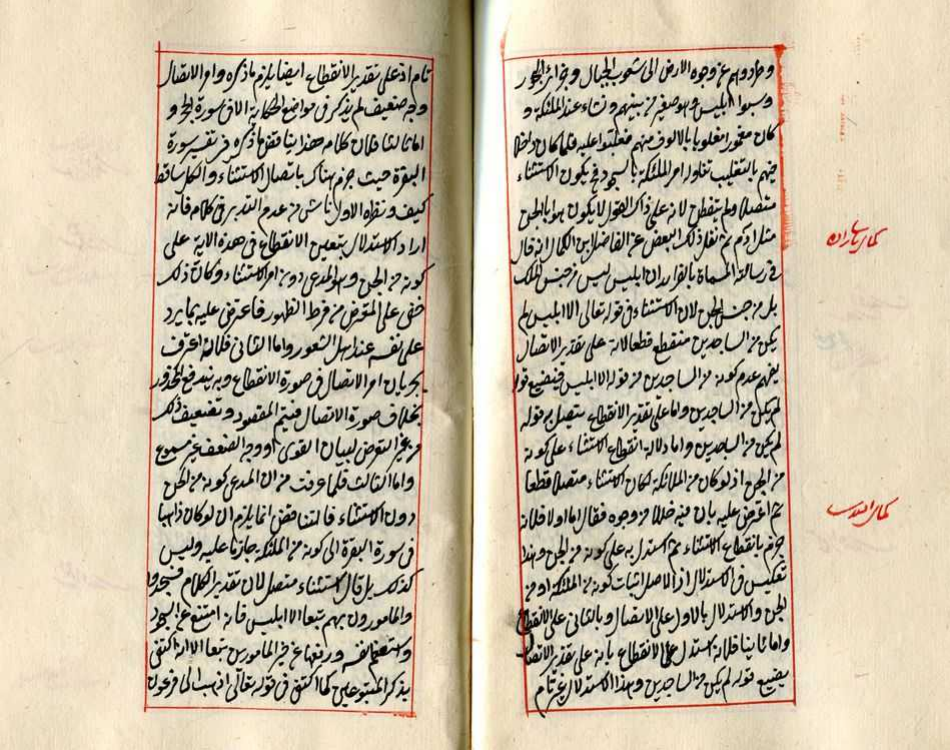 وطردوهم عن وجوه الارض الى شعوب الجبال وجزائر البحور
وسبوا ابليس وهو صغير من بينهم ونشاء عند الملئكة و
كان مغمورا مغلوبا بالالوف منهم فغلبوا عليه فلما كان داخلا
فيهم بالتغليب تناول امر الملئكة بالسجود فح يكون الاستثناء
متصلا ولم ينقطع لانه على ذاك القول لا يكون هو ابا الجن
مثل ادم ثم نقل ذلك البعض عن الفاضل ابن الكمال انه قال
في رسالته المسماة بالفرا ان ابليس ليس من جنس الملك
بل من جنس الجن لان الاستثناء في قوله تعالى الا ابليس لم
يكن من الساجدين منقطع قطعا لانه على تقدير الاتصال
يفهم عدم كونه من الساجدين من قوله الا ابليس فيضيع قوله
لم يكن من الساجدين واما على تقدير الانقطاع يتصل به قوله
لم يكن من الساجدين واما دلالة انقطاع الاستثناء على كونه
من الجن اذ لو كان من الملائكة لكان الاستثناء متصلا قطعا
ثم اعترض عليه بان فيه خللا من وجوه فقال اما اولا فلانه
جزم بانقطاع الاستثناء ثم استدل به على كونه من الجن وهذا
تعكيس في الاستدلال اذ الاصل اثبات كونه من الملئكة او من
الجن والاستدلال بالاول على الاتصال وبالثاني على الانقطاع
واما ثانيا فلانه استدل على الانقطاع بانه على تقدير الاتصال
يضيع قوله لم يكن من الساجدين وهذا الاستدلال غير تام
تام اذ على تقدير الانقطاع ايضا يلزم ما ذكره وامر الاتصال
وجه ضعيف لم يذكر في مواضع الحكاية الا في سورة الحجر و
اما ثالثا فلان كلامه هذا يناقض ما ذكره في تفسير سورة
البقرة حيث جزم هناك باتصال الاستثناء والكل ساقط
كيف ونظره الاول ناش من عدم التدبر في كلامه فانه
اراد الاستدلال بتعين الانقطاع في هذه الاية على
كونه من الجن وهو المدعى دون امر الاستثناء وكان ذلك
خفى على المعترض من فرط الظهور فاعترض عليه بما يرد
على نفسه عند اهل الشعور واما الثاني فلانه اعترف
بجريان امر الاتصال في صورة الانقطاع وبه يندفع المحذور
بخلاف صورة الاتصال فيتم المقصود وتضعيف ذلك
من غير التعرض لبيان القوى او وجه الضعف غير مسموع
واما الثالث فلما عرفت من ان المدعى كونه من الجن
دون الاستثناء فالتناقض انما يلزم ان لو كان ذاهبا
في سورة البقرة الى كونه من الملئكة جازما عليه وليس
كذلك بل قال الاستثناء متصل لان تقدير الكلام فسجدوا
والمامورون بهم تبعا الا ابليس فانه امتنع عن السجود
واستعظم نفسه ورفعها عن المامورين تبعا الا انه اكتفى
بذكر المتبوعين كما اكتفى في قوله تعالى اذهب الى فرعون